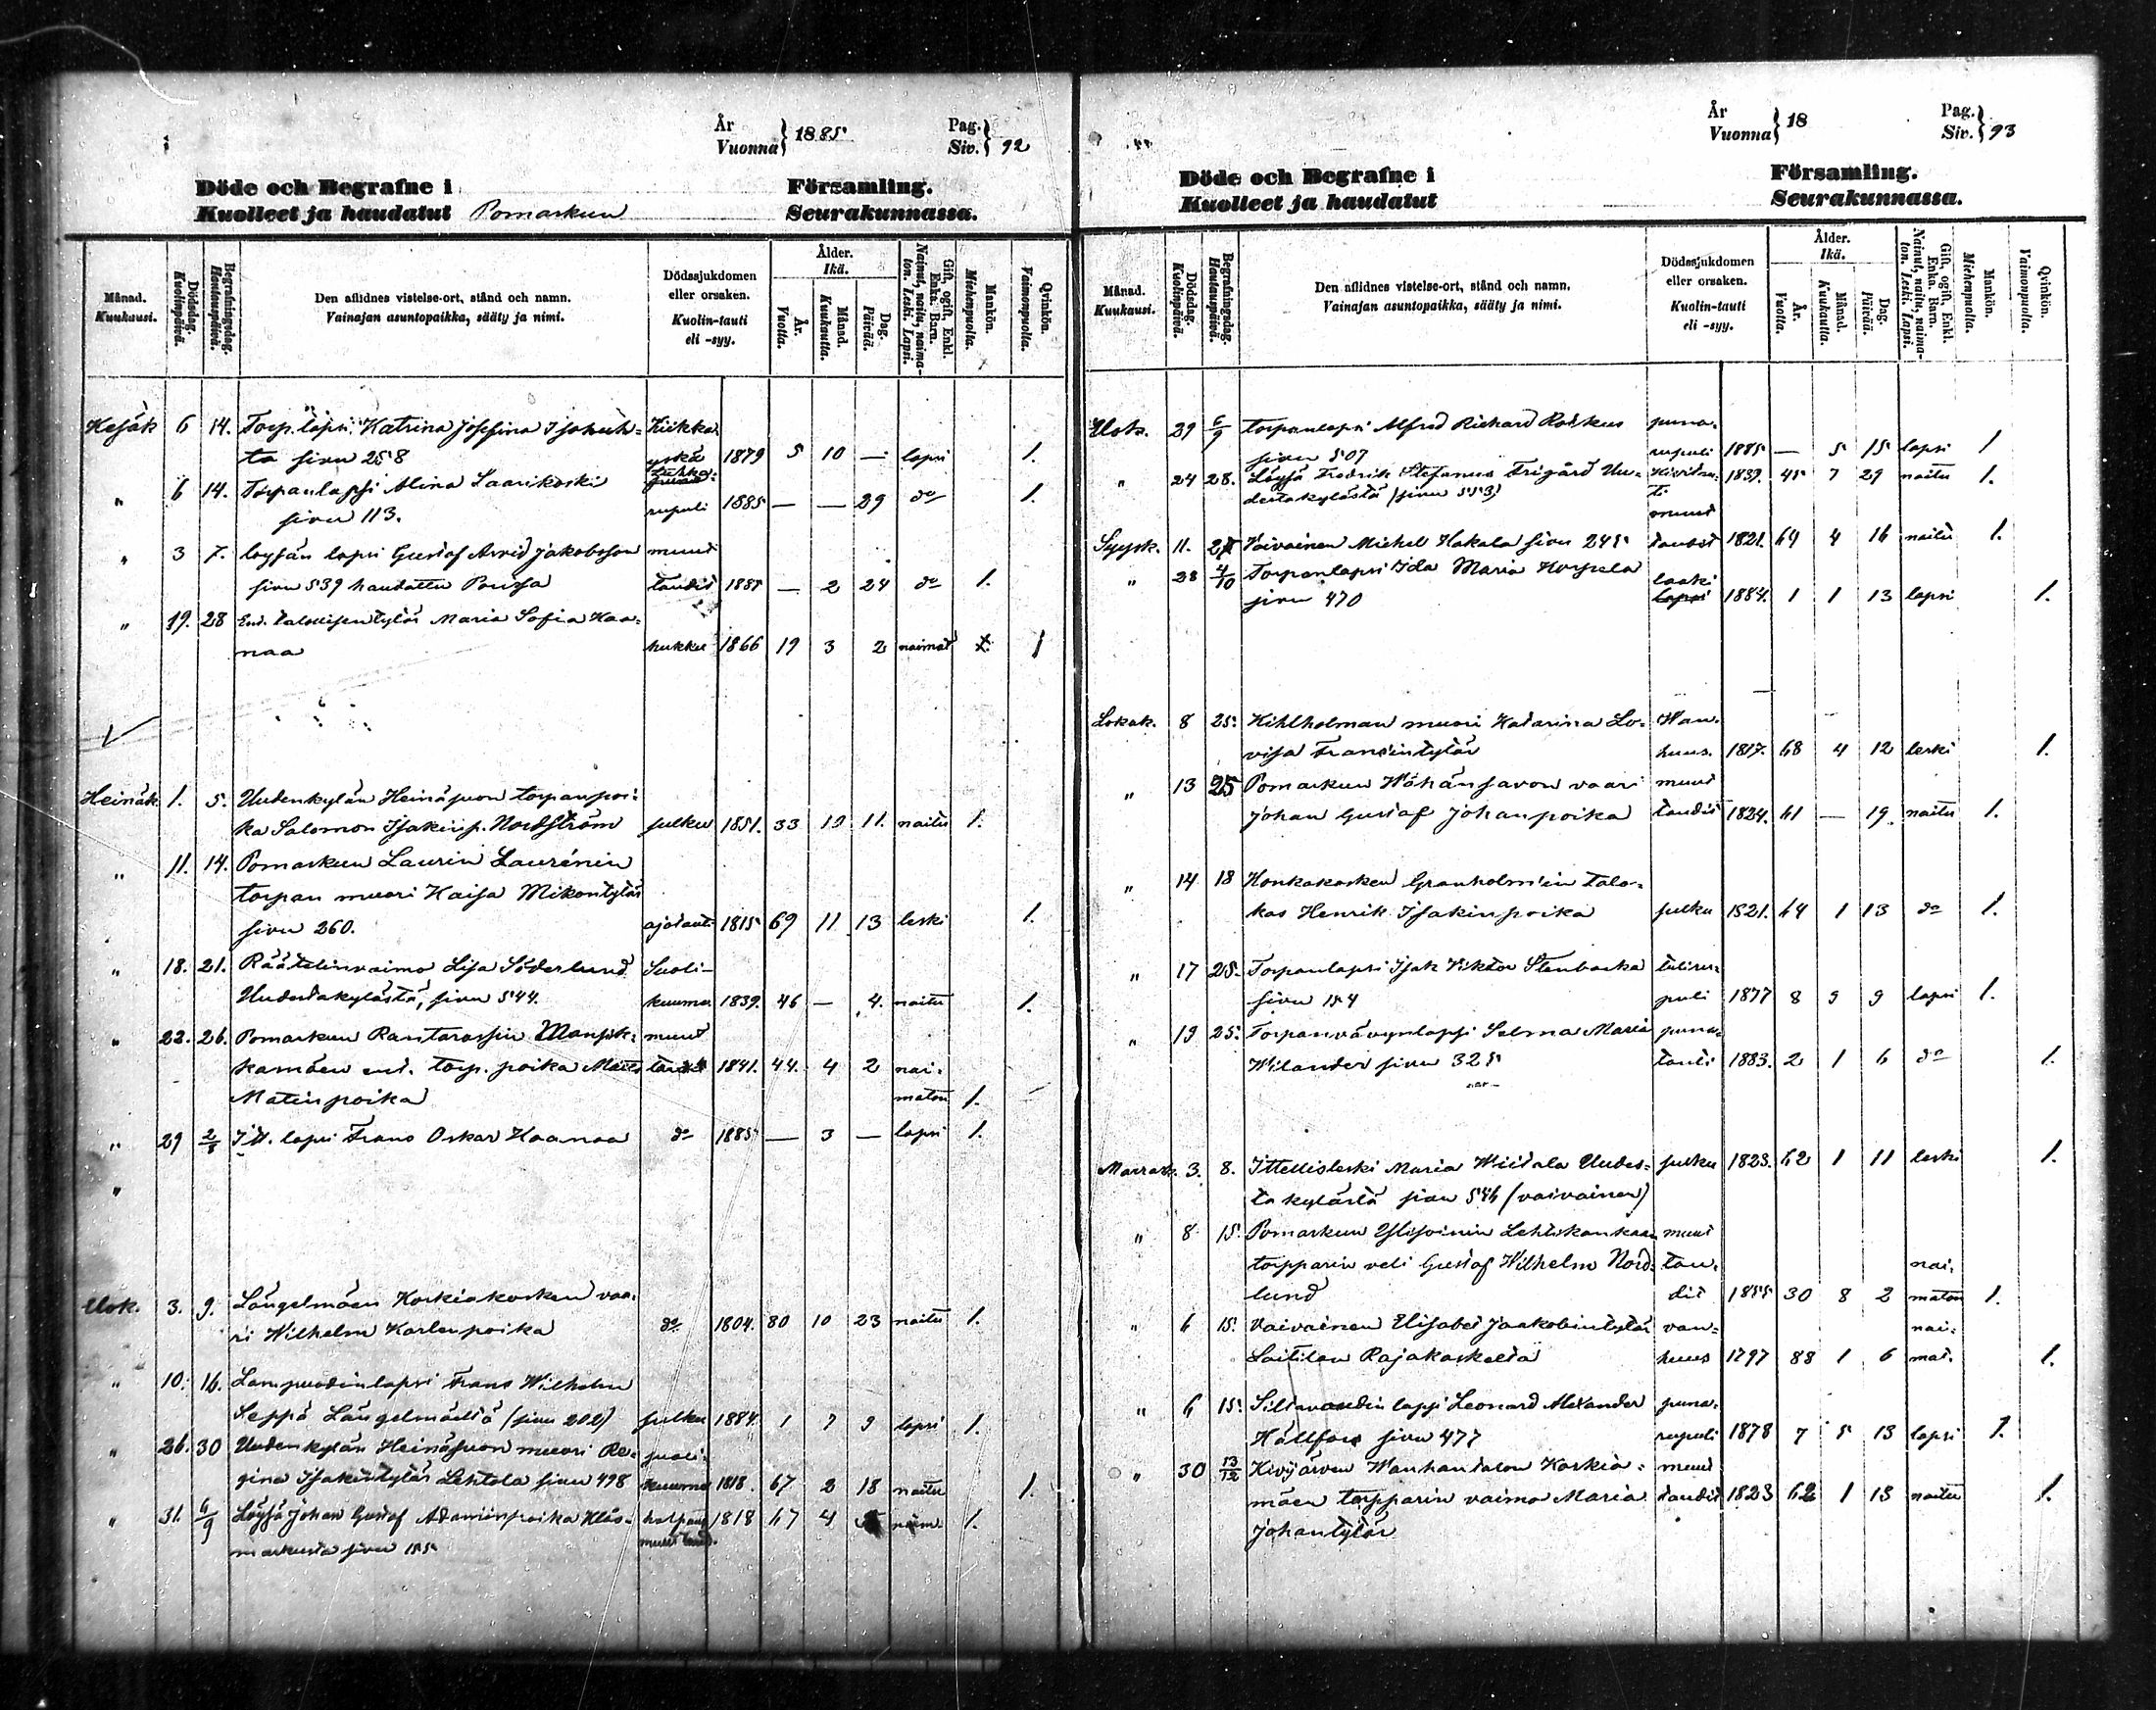 År
Vuonna } 1885. Pag. Siv. } 92
Döde och Begrafne i Församling.
Kuolleet ja haudatut Pomarkun Seurakunnassa.
Månad. Kuukausi. Dödsdag. Kuolinpäivä. Begrafningsdag. Hautauspäivä. Den aflidnes vistelse-ort, stånd och namn. Vainajan asuntopaikka, sääty ja nimi. Dödssjukdomen eller orsaken. Kuolin-tauti eli -syy. Ålder. Ikä. År. Vuotta. Månad. Kuukautta. Dag. Päivää. Gift, ogift, Enkl. Enka. Barn. Nainut, naitu, naimaton. Leski. Lapsi. Mankön. Miehenpuolta. Qvinkön. Vaimonpuolta.
Kesäk 6 14. Torp. lapsi Katrina Josefina
ta sivu 258 yskä 1879 5 10 — lapsi 1.
" 6 14. Torpanlapsi Alina Saarikoski
sivu 113. rupuli 1885 — — 29 do 1.
" 3 7. loysän lapsi Gustaf Arvid Jakobsson muut
sivu 539 haudattu taudit 1885 — 2 24 do 1.
" 19. 28 Ent. talollisentytär Maria Sofia Haa-
naa hukkui 1866 19 3 2 naimat 1
Heinäk 1. 5. Uudenkylän Heinäsuon torpanpoi-
ka Salomon Isakinp. Nordström sulku 1851. 33 10 11. naitu 1.
" 11. 14. Pomarkun Laurin Laurénin
torpan muori Kaisa Mikontytär
sivu 260. ajotauti 1815 69 11 13 leski 1.
" 18. 21. Räätelinvaimo Lisa Söderlund Suoli-
Uudestakylästä, sivu 544. kuume 1839. 46 — 4. naitu 1.
" 22. 26. Pomarkun Rantarossin Mansik- muut
kamäen ent. torp. poika Matts taudit 1841. 44. 4 2 nai-
Matinpoika maton 1.
" 29 2/8 It. lapsi Frans Oskar Haanaa do 1885 — 3 — lapsi 1.
"
Elok. 3. 9. Längelmäen Korkiakosken vaa-
ri Wilhelm Karlenpoika do 1804. 80 10 23 naitu 1.
" 10. 16. Lampuodinlapsi Frans Wilhelm
Seppä Längelmäeltä (sivu 202) sulku 1884. 1 7 9 lapsi 1.
" 26. 30 Uudenkylän Heinäsuon muori Re- suoli-
gina Isakintytär Lehtola sivu 498 kuume 1818. 67 2 18 naitu 1.
" 31. 6/9 Löysä Johan Gustaf Adaminpoika Klås- 1818 67 4 naim. 1.
markusta sivu 185
År
Vuonna } 18 Pag. Siv. } 93
Döde och Begrafne i Församling.
Kuolleet ja haudatut Seurakunnassa.
Månad. Kuukausi. Dödsdag. Kuolinpäivä. Begrafningsdag. Hautauspäivä. Den aflidnes vistelse-ort, stånd och namn. Vainajan asuntopaikka, sääty ja nimi. Dödssjukdomen eller orsaken. Kuolin-tauti eli -syy. Ålder. Ikä. År. Vuotta. Månad. Kuukautta. Dag. Päivää. Gift, ogift, Enkl. Enka. Barn. Nainut, naitu, naimaton. Leski. Lapsi. Mankön. Miehenpuolta. Qvinkön. Vaimonpuolta.
Elok. 29 6/9 torpanlapsi Alfred Richard Roiskus puna-
sivu 507 rupuli 1885 — 5 15 lapsi 1
" 24 28. Löysä Fredrik Stefanus Frigård Uu- 1839. 45 7 29 naitu 1.
destakylästä (sivu 553)
muut
Syysk. 11. Vaivainen Michel Hakala sivu 245 taudit 1821. 64 4 16 naitu 1.
" 28 4/10 Torpanlapsi Ida Maria Horsela laaki
sivu 470 1884. 1 1 13 lapsi 1.
Lokak. 8 25. Kihlholman muori Katarina Lo- Wan-
visa Fransintytär huus. 1817. 68 4 12 leski 1.
" 13 25 Pomarkun Wähänsavon vaari muut
Johan Gustaf Johanpoika taudit 1824. 61 — 19. naitu 1.
" 14 18 Honkakosken Granholmin talo-
kas Henrik Isakinpoika sulku 1821. 64 1 13 do 1.
" 17 25. Torpanlapsi Isak Viktor Stenbacka tuliru-
sivu 184 puli 1877 8 9 9 lapsi 1.
" 19 25. Torpanvävynlapsi Selma Maria puna-
Wilander sivu 325 tauti 1883. 2 1 6 do 1.
Marrask. 3. 8. Ittellisleski Maria Wiitala Uudes- sulku 1823. 62 1 11 leski 1.
ta kylästä sivu 546 (vaivainen)
" 8 15. Pomarkun Ylisoinin Lehtiskankaan muut
torpparin veli Gustaf Wilhelm Nord- tau- nai-
lund dit 1855 30 8 2 maton 1.
" 6 15. Vaivainen Elisabet Jaakobintytär van- nai-
Laitilan Rajakoskelta huus 1797 88 1 6 mat. 1.
" 6 15. Siltavoudin lapsi Leonard Alexander puna-
Hällfors sivu 477 rupuli 1878 7 5 13 lapsi 1.
" 30 13/12 Kivijärven Wanhantalon Korkia- muut
mäen torpparin vaimo Maria taudit 1823 62 1 13 naitu 1.
Johantytär